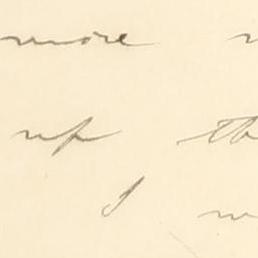 more
up th
I w